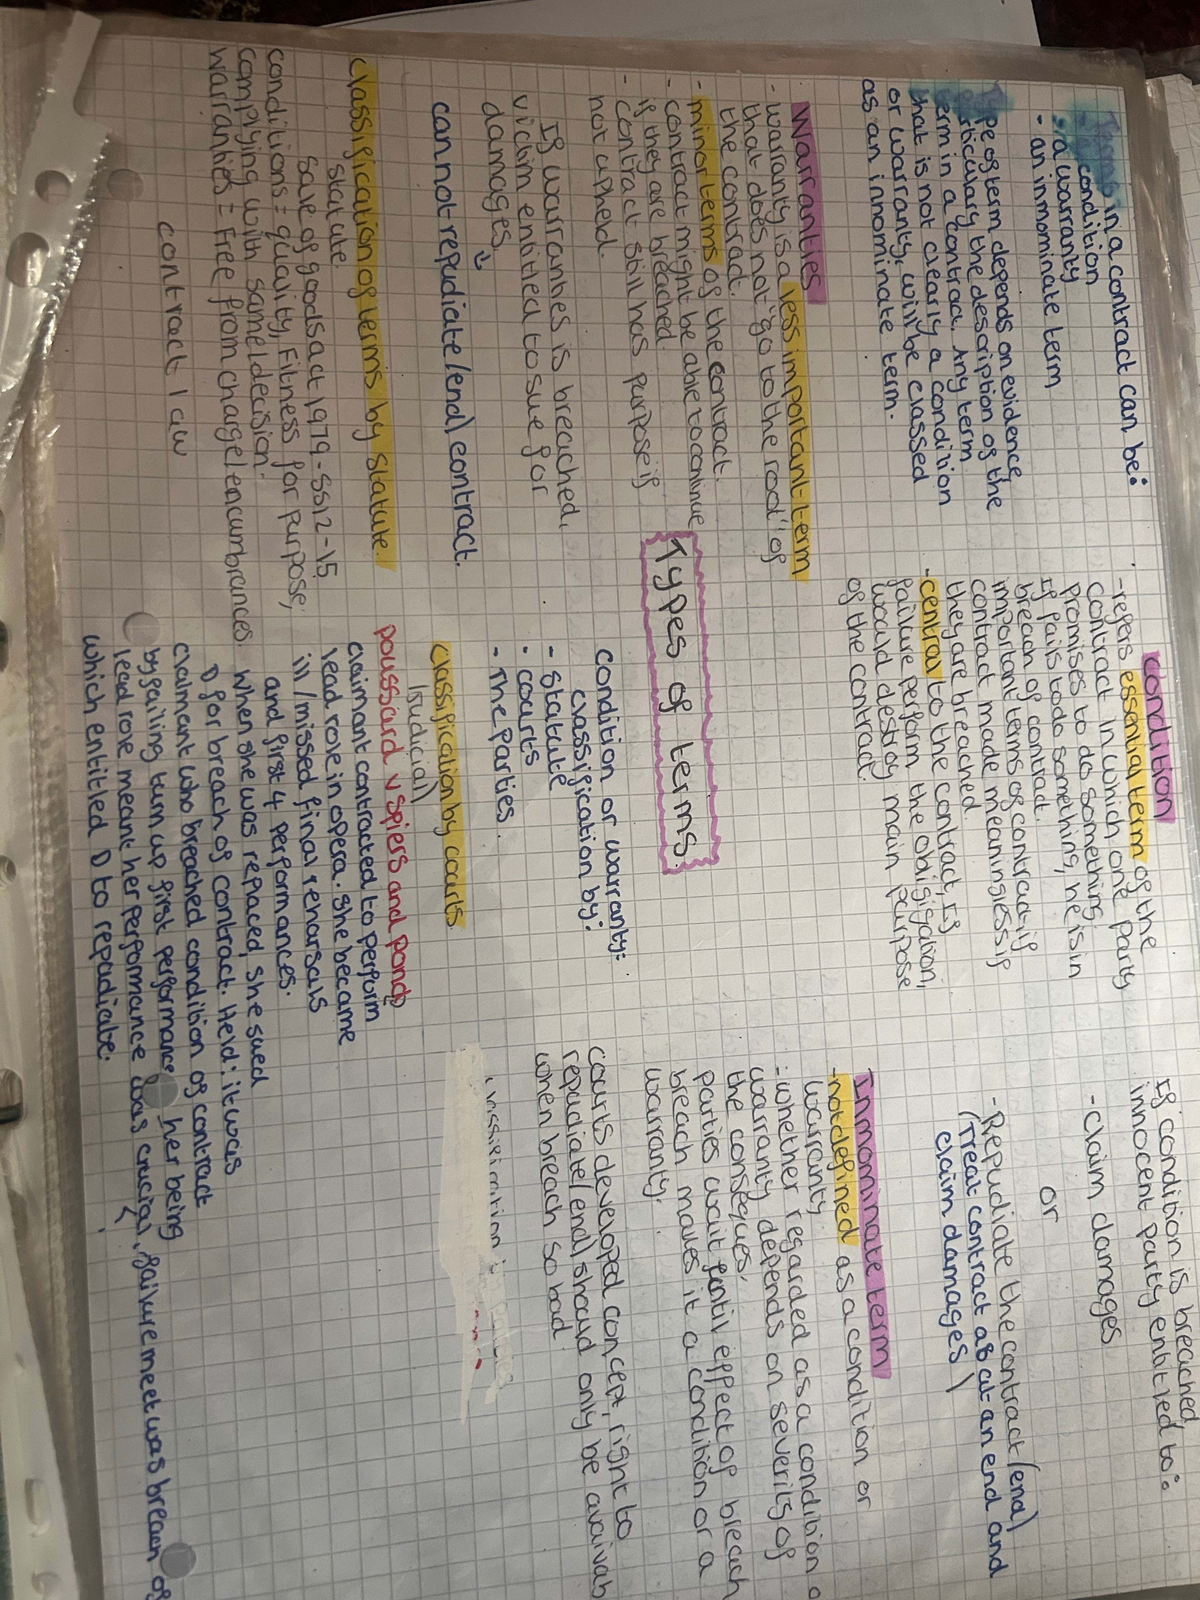 Terms in a contract can be:
- a condition
- a warranty
- an innominate term
Type of term depends on evidence,
particulary the description of the
term in a contract. Any term
that is not clearly a condition
or warranty, will be classed
as an innominate term.
Condition
- refers essential term of the
contract in which one party
promises to do something.
If fails to do something, he is in
breach of contract.
important terms of contract if
contract made meaninglessif
they are breached
- central to the contract, If
failure perform the obligation,
would destroy main purpose
of the contract.
If condition is breached
innocent party entitled to:
- claim damages
or
- Repudiate the contract (end)
(Treat contract as at an end and
claim damages)
Warranties
- warranty is a less important term
that does not "go to the root" of
the contract.
- minor terms of the contract.
- contract might be able to continue
if they are breached.
- contract still has purpose if
not upheld.
If warranties is breached,
victim entitled to sue for
damages
cannot repudiate (end) contract.
Types of terms
condition or warranty:
classification by:
- Statute
- courts
- The parties.
Innominate term
- not defined as a condition or
warranty
- whether regarded as a condition o
warranty depends on severity of
the conseques,
parties wait until effect of breach
breach makes it a condition or a
warranty.
courts developed concept, right to
repudiate (end) should only be availab
when breach so bad
Classification of terms by statute.
Statute.
Sale of goods act 1979 - SS12 - 15
conditions = quality, Fitness for purpose,
complying with same/decision.
warranties = Free from charge/encumbrances.
contract law
Classification by courts
(Judicial)
Poussard v Spiers and Pond
claimant contracted to perform
lead role in opera. she became
ill/missed final rehearsals
and first 4 performances.
When she was replaced she sued
D for breach of contract. Held: it was
claimant who breached condition of contract
by failing turn up first performance. her being
lead role meant her performance was crucial, failure meet was breach of
which entitled D to repudiate.